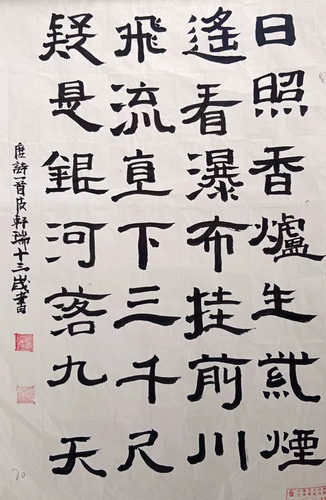 日照香爐生紫煙
遙看瀑布挂前川
飛流直下三千尺
疑是銀河落九天
唐詩一首皮軒瑞十三歲書
70